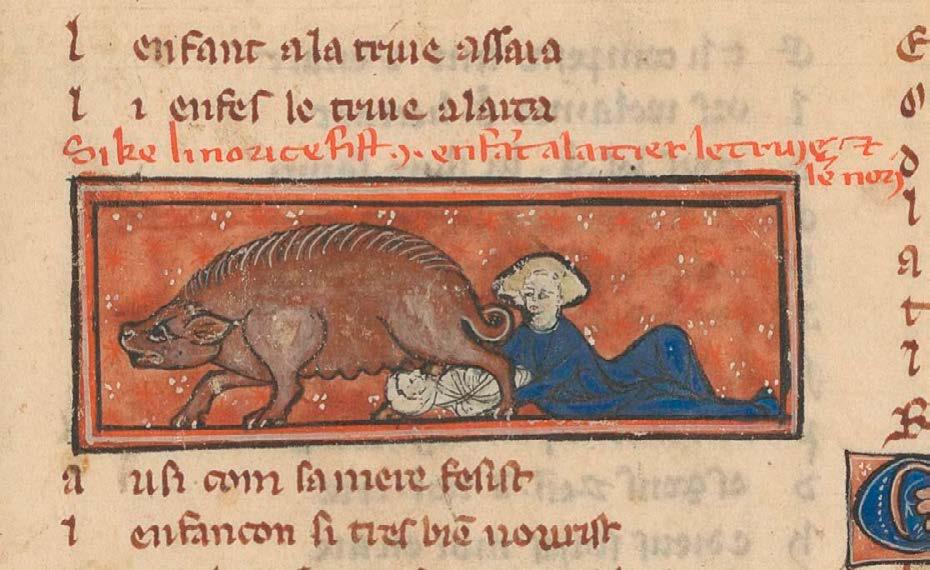 l enfant a la truie assaia
l i enfes le truie alaita
Si ke li norice fist .j. enfāt alaitier le truie ⁊
le nori
a usi com sa mere fesist
l enfancon si tres biē nourist
E
o
d
l
a
t
l